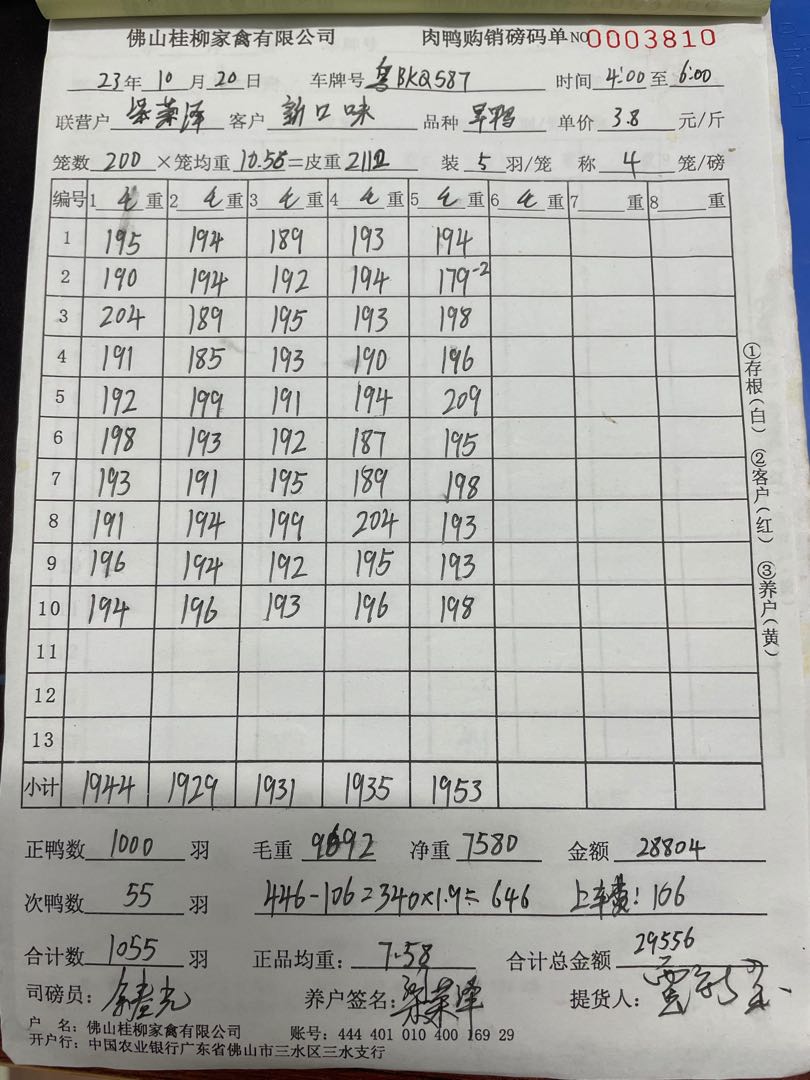 佛山桂柳家禽有限公司 肉鸭购销磅码单 NO 0003810
23年 10月 20日 车牌号 粤BKQ587 时间 4:00 至 6:00
联营户 梁荣泽 客户 新口味 品种 旱鸭 单价 3.8 元/斤
笼数 200 ×笼均重 10.56 =皮重 2112 装 5 羽/笼 称 4 笼/磅
编号 1 毛 重 2 毛 重 3 毛 重 4 毛 重 5 毛 重 6 毛 重 7 重 8 重
1 195 194 189 193 194
2 190 194 192 194 179-2
3 204 189 195 193 198
4 191 185 193 190 196
5 192 199 191 194 209
6 198 193 192 187 195
7 193 191 195 189 198
8 191 194 199 204 193
9 196 194 192 195 193
10 194 196 193 196 198
11
12
13
小计 1944 1929 1931 1935 1953
正鸭数 1000 羽 毛重 9692 净重 7580 金额 28804
次鸭数 55 羽 446-106=340×1.9= 646 上车费: 106
合计数 1055 羽 正品均重: 7.58 合计总金额 29556
司磅员: 养户签名: 梁荣泽 提货人:
户 名: 佛山桂柳家禽有限公司 账号: 444 401 010 400 169 29
开户行: 中国农业银行广东省佛山市三水区三水支行
①存根(白) ②客户(红) ③养户(黄)